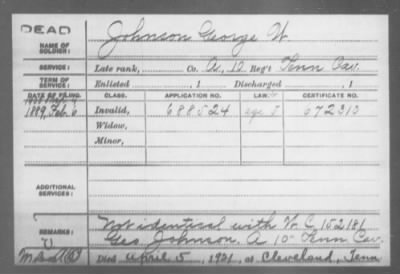 DEAD
NAME OF SOLDIER: Johnson George W.
SERVICE: Late rank, Co. A, 10 Reg't Tenn Cav.
TERM OF SERVICE: Enlisted , 1 Discharged , 1
DATE OF FILING. CLASS. APPLICATION NO. LAW. CERTIFICATE NO.
1889, Feb. 6 Invalid, 688524 672313
Widow,
Minor,
ADDITIONAL SERVICES:
REMARKS: Not identical with W. C. 152181
Geo Johnson, A 10" Tenn Cav.
Died April 5, 1921, at Cleveland, Tenn